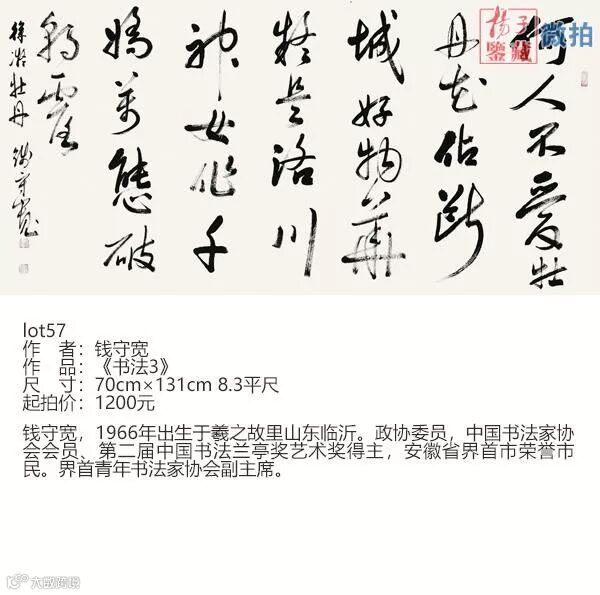 何人不爱牡
丹花占断
城中好物華
疑是洛川
神女作千
娇万態破
朝霞
徐凝牡丹 钱守宽
杨子
鉴藏
微拍
lot57
作 者：钱守宽
作 品：《书法3》
尺 寸：70cm×131cm 8.3平尺
起拍价：1200元
钱守宽，1966年出生于羲之故里山东临沂。政协委员，中国书法家协
会会员、第二届中国书法兰亭奖艺术奖得主，安徽省界首市荣誉市
民。界首青年书法家协会副主席。
大数跨境